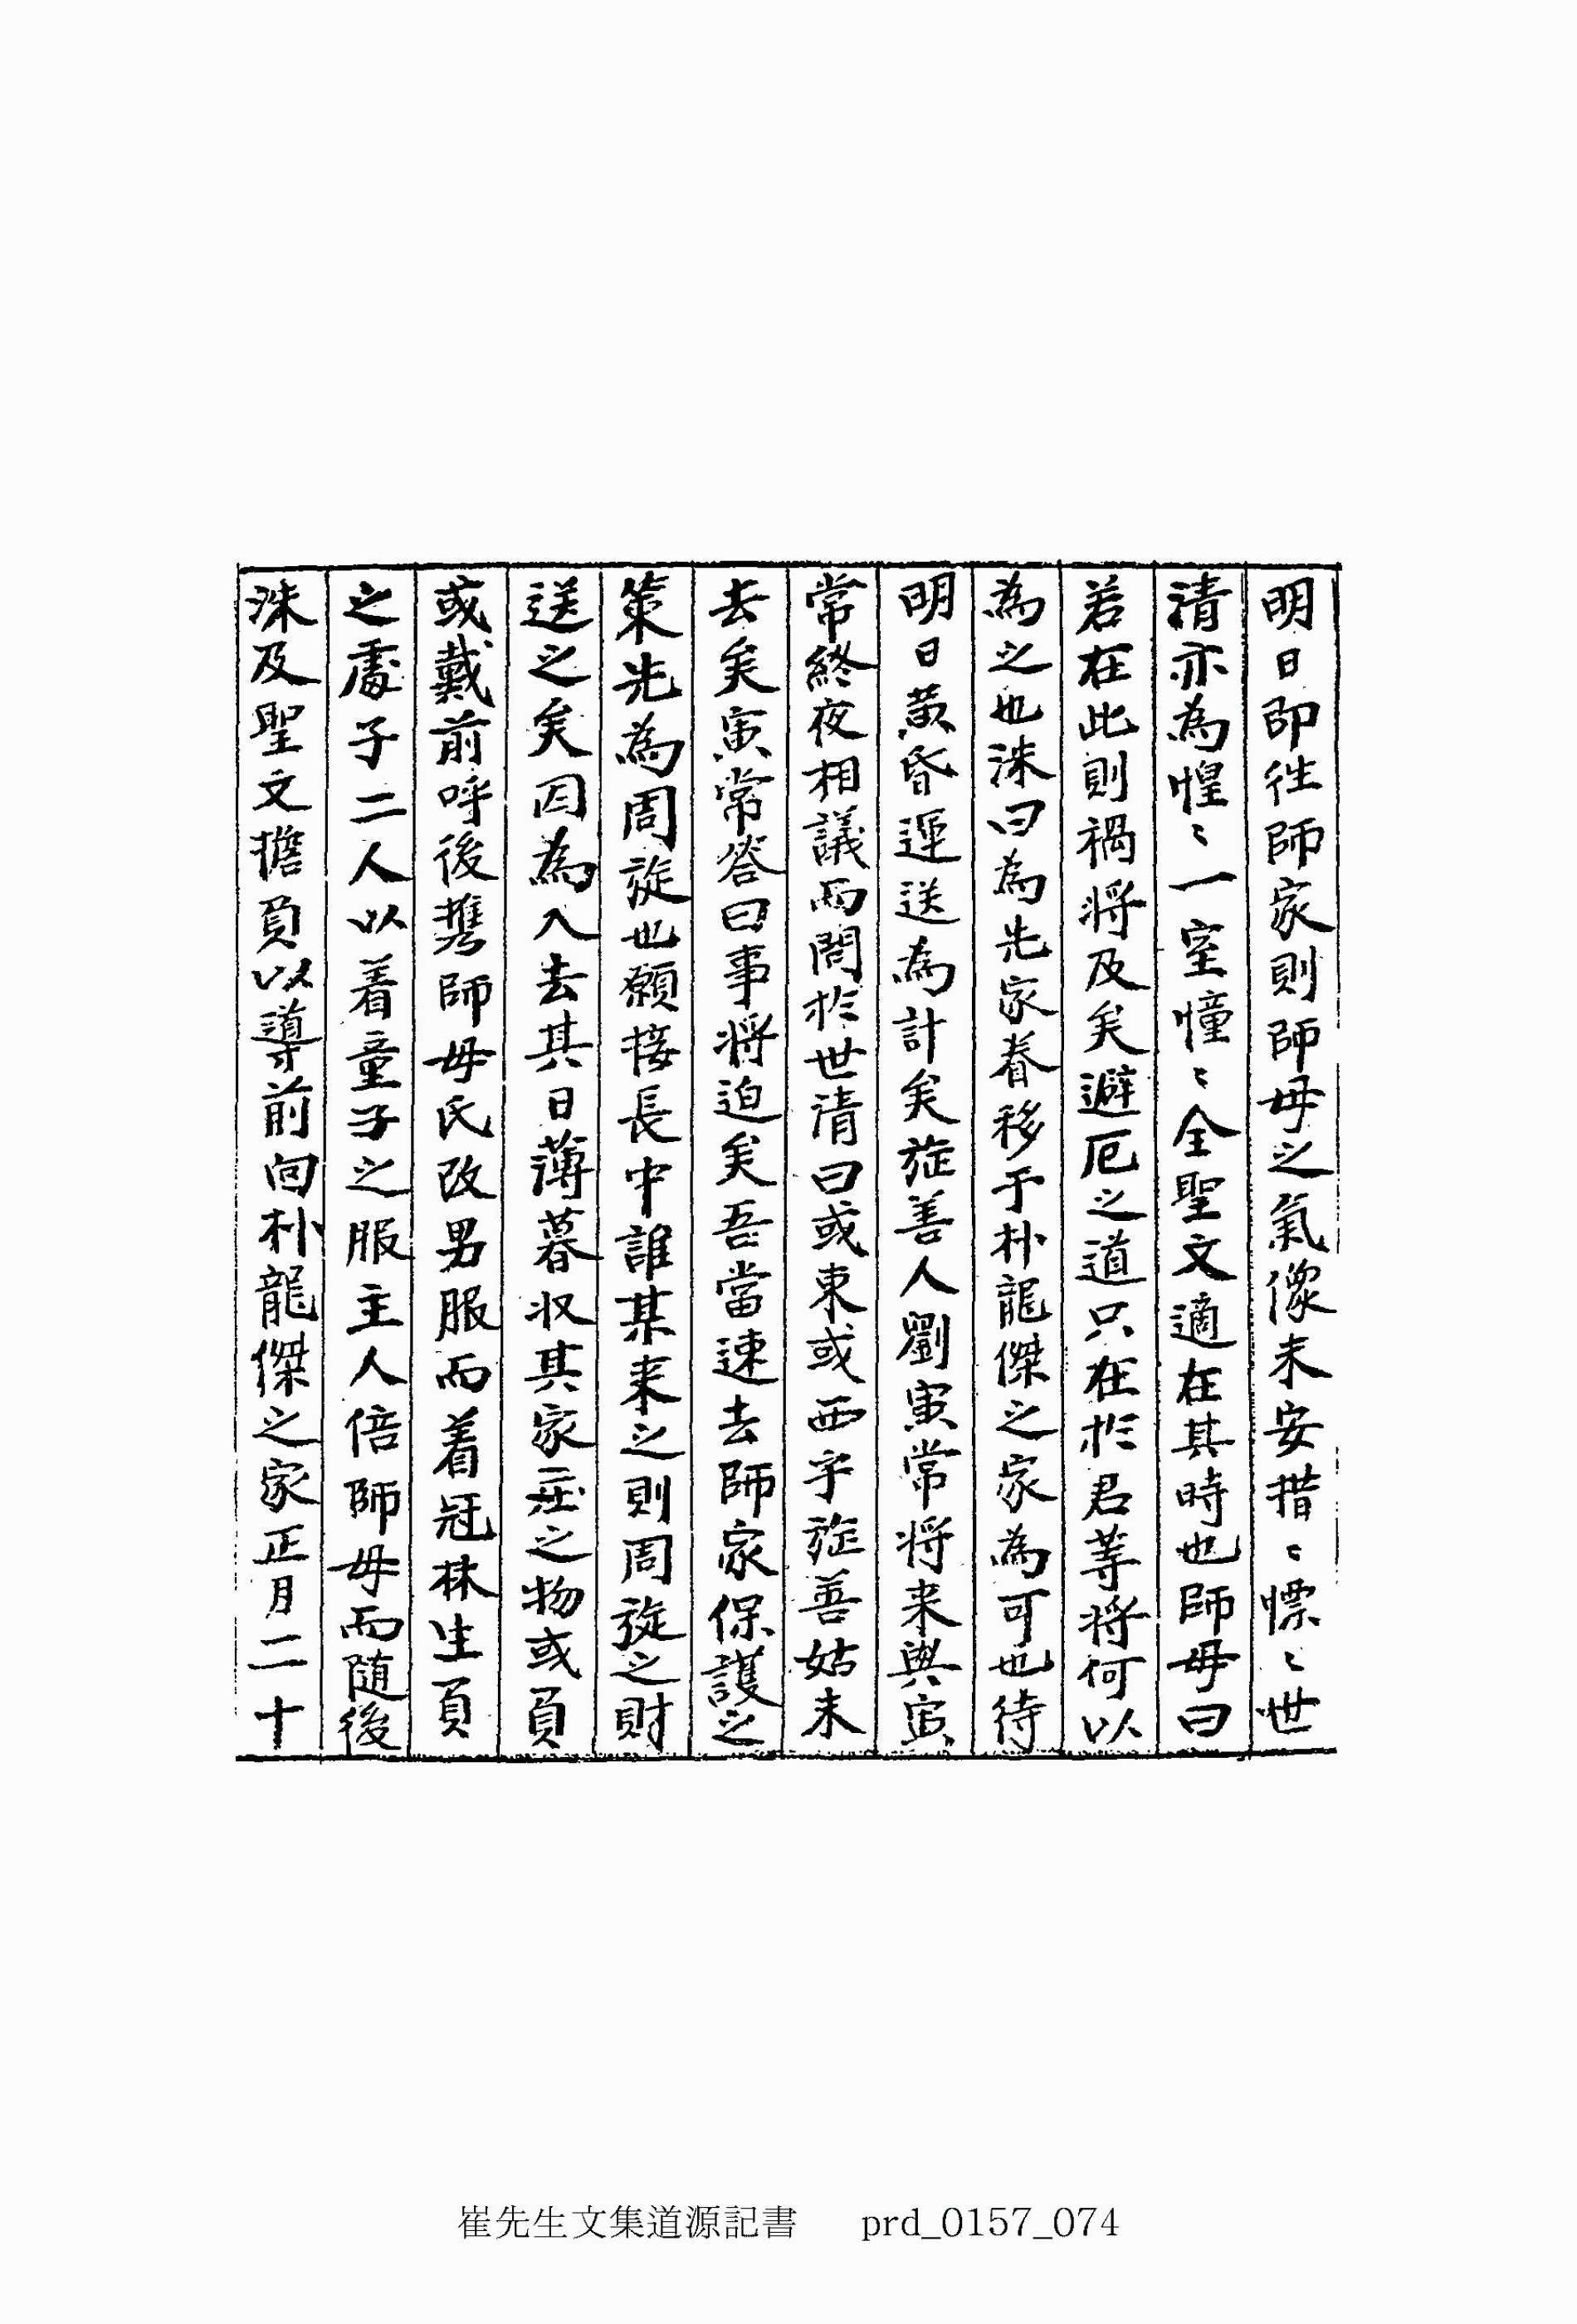 明日即徃師家則師母之氣像未安措〻慓〻世
清亦為惶〻一室憧〻全聖文適在其時也師母曰
若在此則禍將及矣避厄之道只在於君等將何以
為之也洙曰為先家眷移于朴龍傑之家為可也待
明日黃昏運送為計矣旌善人劉寅常將来與寅
常終夜相議而問於世清曰或東或西乎旌善姑未
去矣寅常答曰事將迫矣吾當速去師家保護之
策先為周旋也願接長中誰某来之則周旋之財
送之矣因為入去其日薄暮収其家産之物或負
或戴前呼後携師母氏改男服而着冠林生員
之處子二人以着童子之服主人倍師母而随後
洙及聖文擔負以導前向朴龍傑之家正月二十
崔先生文集道源記書 prd_0157_074